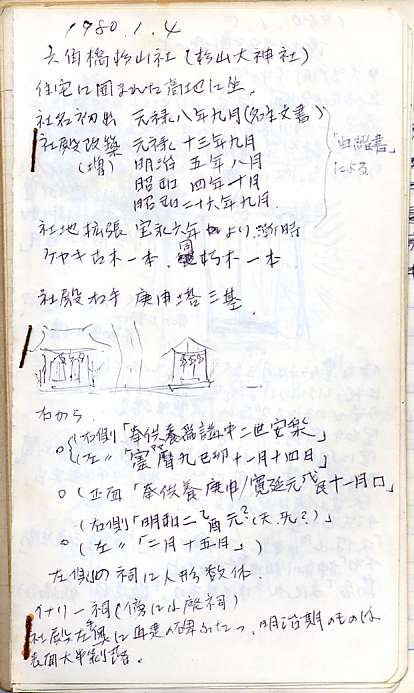 1980.1.4
六角橋杉山社(杉山大神社)
住宅に囲まれた高地に坐。
社名初出 元禄八年九月(名主文書)
社殿改築 元禄十三年九月
(増) 明治 五年八月
昭和 四年十月
昭和二十六年九月
「由緒書」
による
社地拡張 宝永六年 より漸時
ケヤキ古木一本、同朽木一本
社殿右手 庚申塔三基
右から
○(右側「奉供養 講中二世安楽」
(左〃「宝暦九己卯十一月十四日」
○(正面「奉供養庚申/寛延元戊辰十一月口」
(右側「明和二乙酉元?(天、死?)」
○(左〃「二月十五日」)
左側の祠に人形数体。
イナリ一祠(傍に小殿祠)
社殿左奥に再建の碑ふたつ、明治期のものは
表面大半剥落。